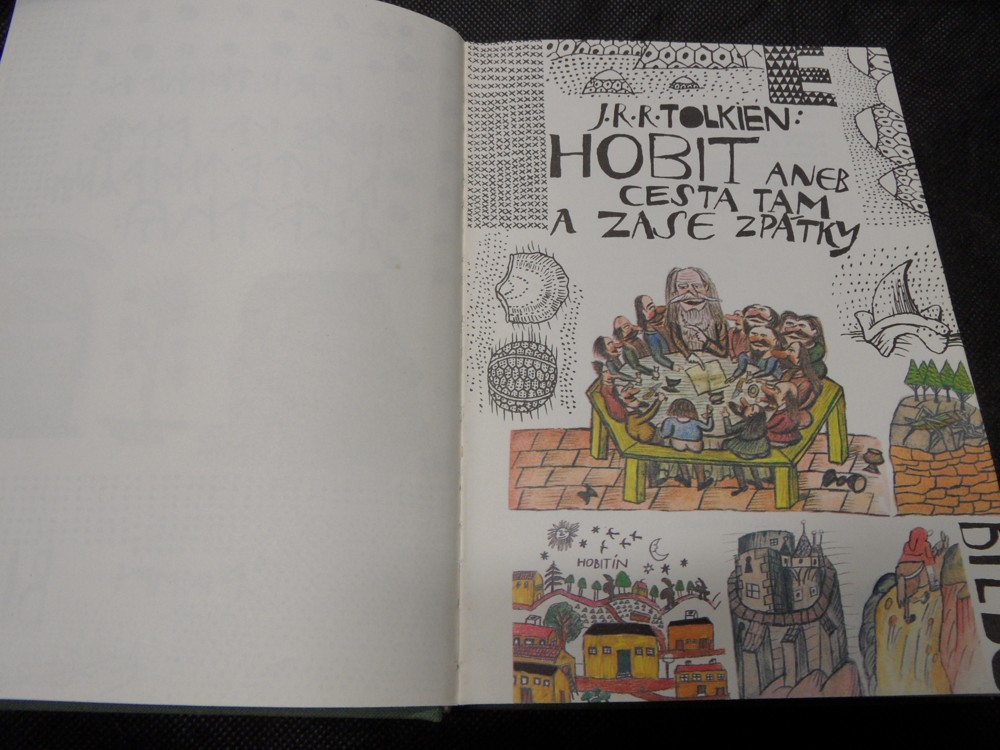 J.R.R.TOLKIEN:
HOBIT ANEB
CESTA TAM
A ZASE ZPÁTKY
HOBITÍN
BILBO